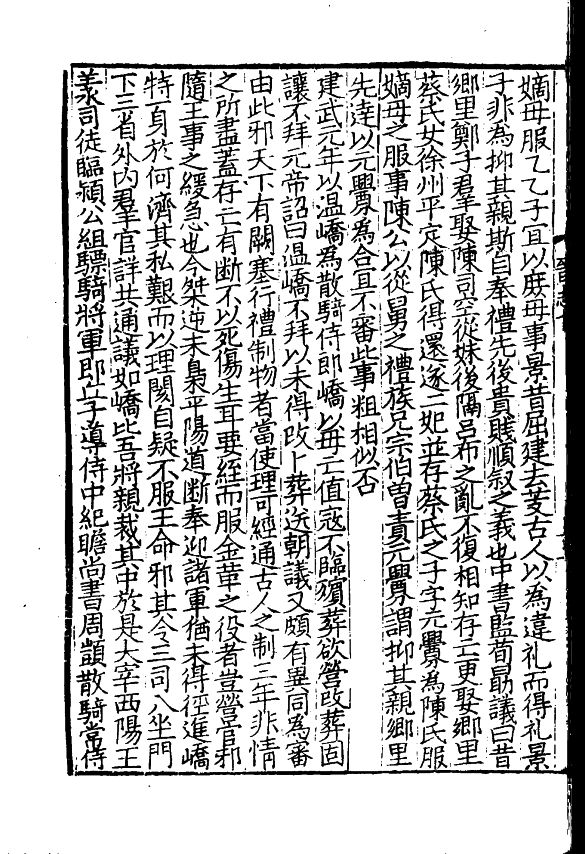 嫡母服乙乙子宜以庶母事景昔屈建去芰古人以為違礼而得礼景
子非為抑其親斯自奉禮先後貴賤順叙之義也中書監荀勗議曰昔
鄉里鄭子羣娶陳司空從妹後隔吕布之亂不復相知存亡更娶鄉里
蔡氏女徐州平定陳氏得還遂二妃並存蔡氏之子字元舋為陳氏服
嫡母之服事陳公以從舅之禮族兄宗伯曽責元舋謂抑其親鄉里
先達以元舋為合宜不審此事粗相似否
建武元年以温嶠為散騎侍郎嶠以母亡值宼不臨殯葬欲營改葬固
讓不拜元帝詔曰温嶠不拜以未得改卜葬送朝議又頗有異同為審
由此邪天下有闕塞行禮制物者當使理可經通古人之制三年非情
之所盡蓋存亡有断不以死傷生耳要絰而服金革之役者豈營官邪
隨王事之緩急也今桀逆未梟平陽道断奉迎諸軍猶未得徑進嶠
特一身於何濟其私艱而以理閡自疑不服王命邪其令三司八坐門
下三省外内羣官詳共通議如嶠比吾將親裁其中於是太宰西陽王
羕司徒臨潁公組驃騎將軍即丘子導侍中紀瞻尚書周顗散騎常侍